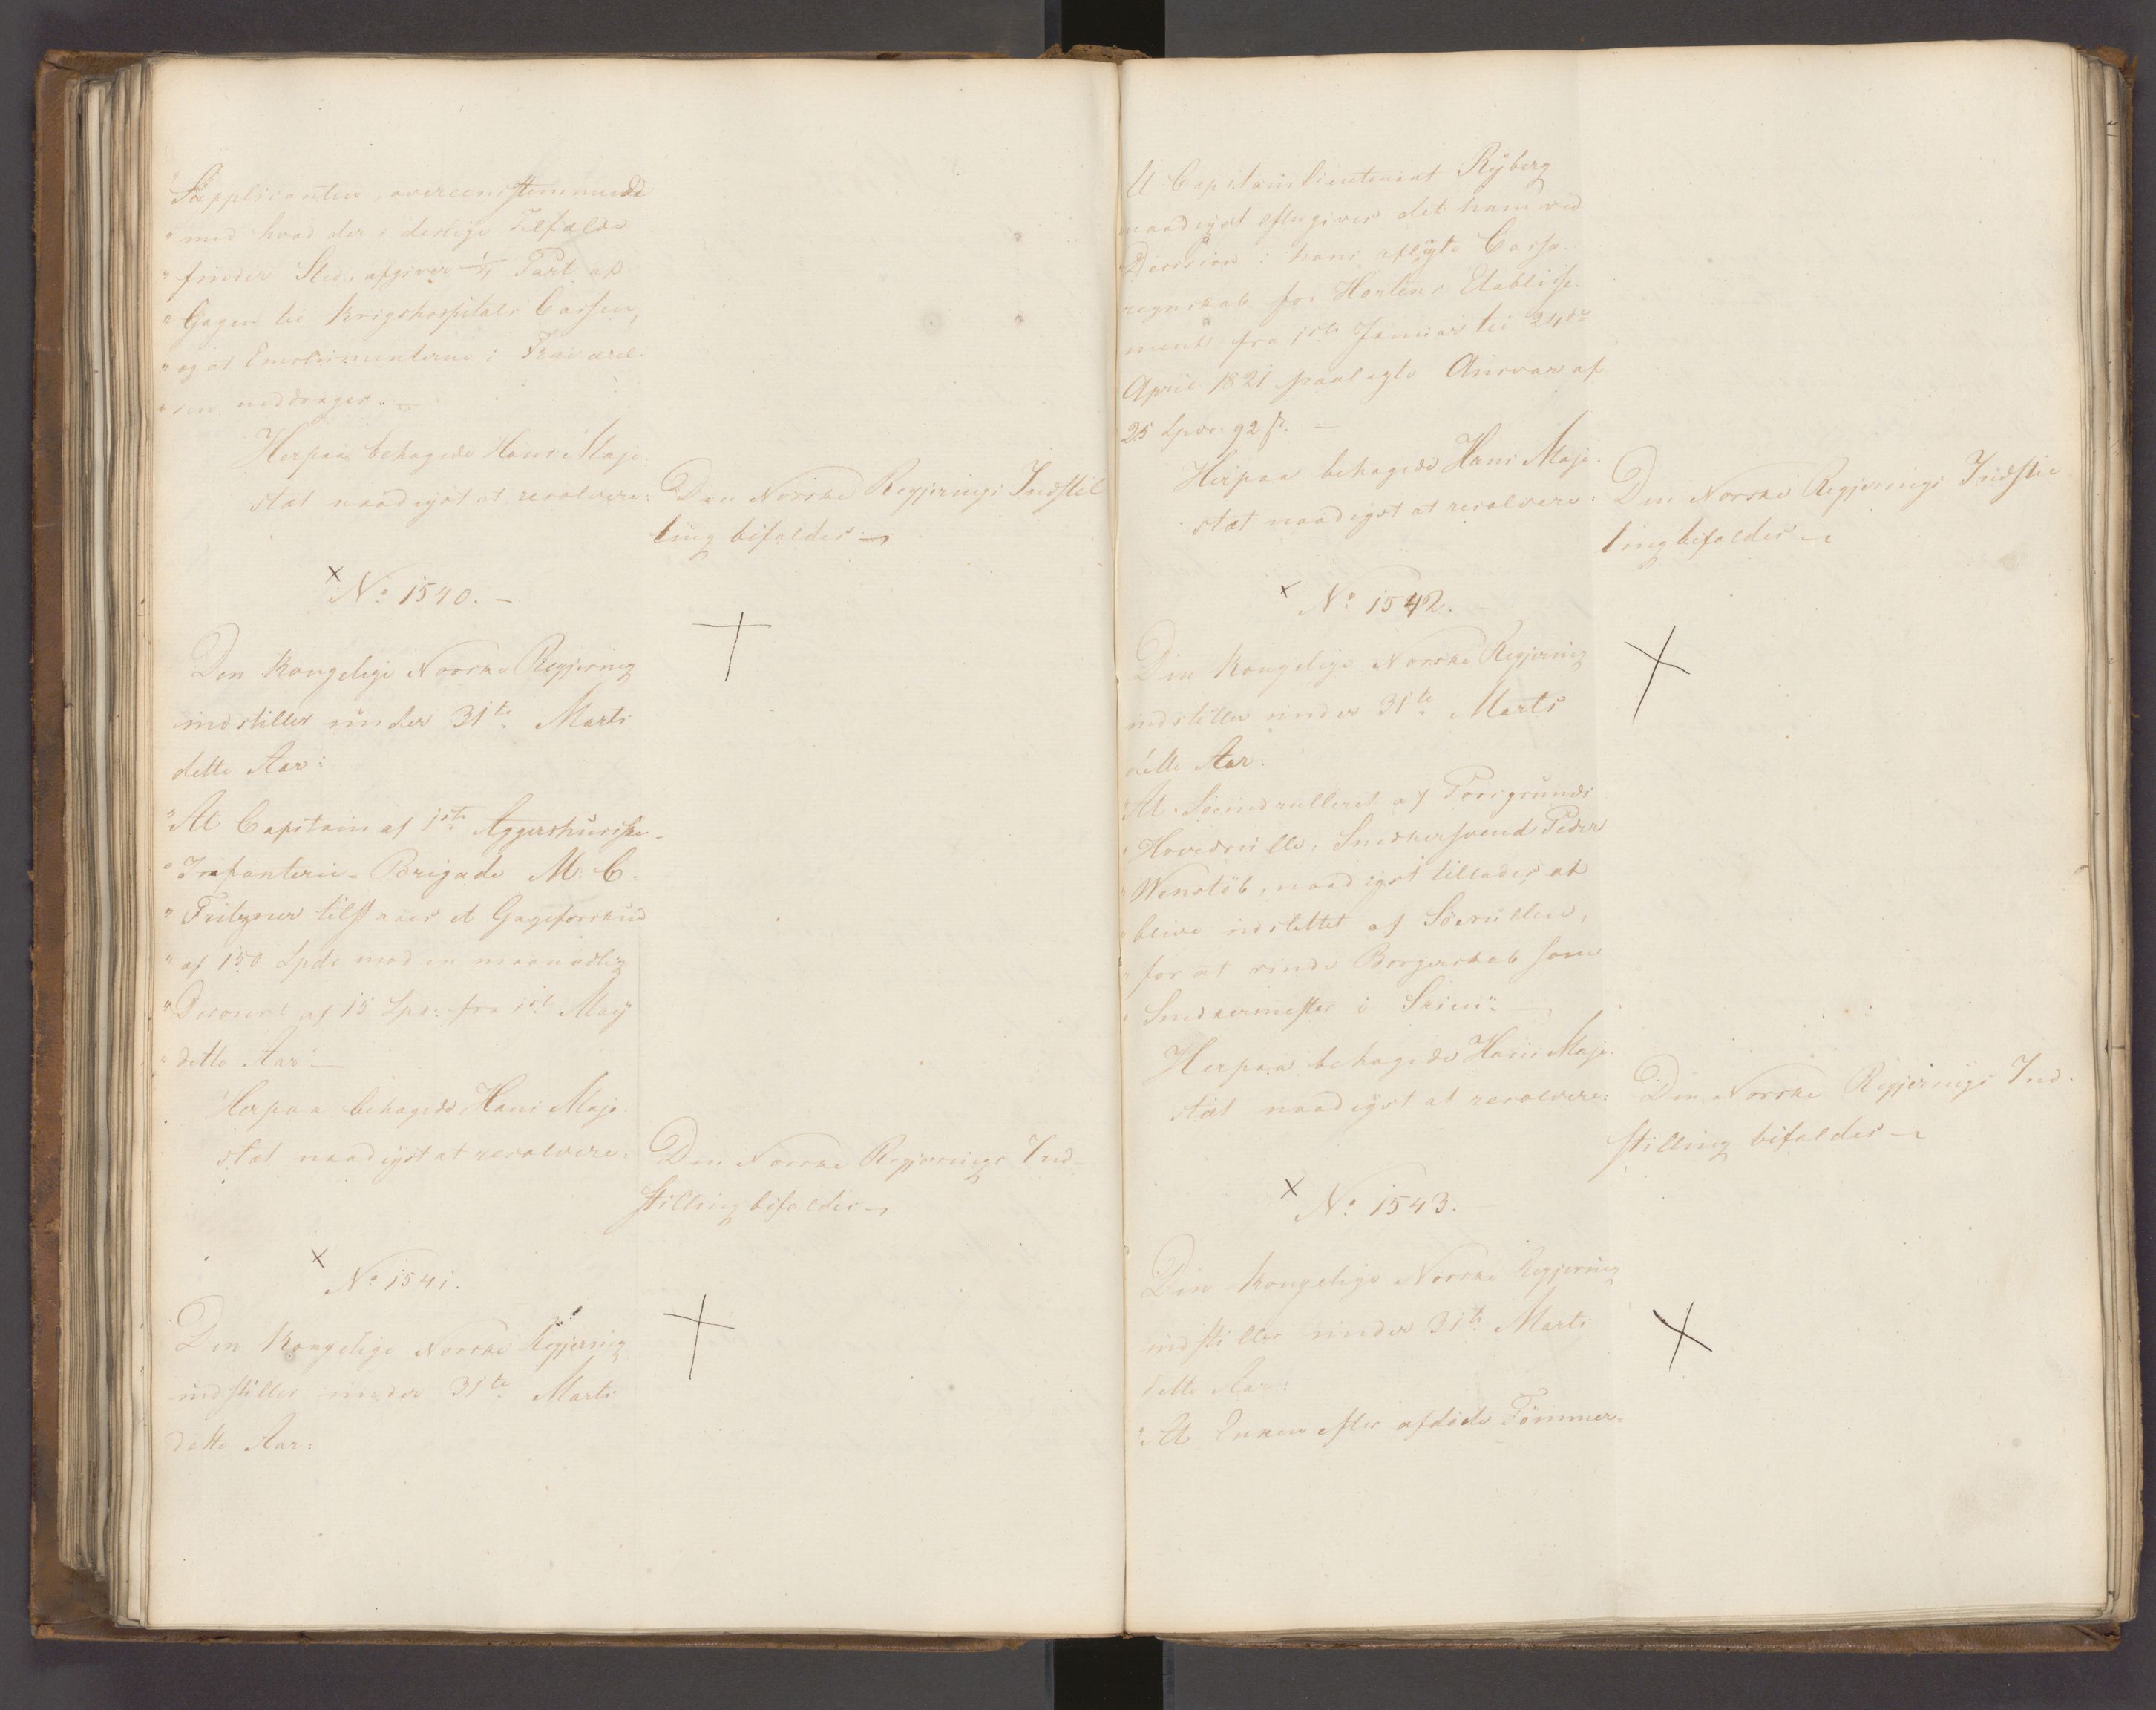 "Supplicanten, overeensstemmende
"med hvad der i deslige Tilfælde
"finder Sted, afgiver 1/4 Part af
"Gagen til Krigshospitals Cassen,
"og at Emolumenterne i Fraværel-
"sen inddrages. —
Herpaa behagede Hans Maje-
stæt naadigst at resolvere:
Den Norske Regjerings Indstil
ling bifaldes —
× No 1540. —
Den Kongelige Norske Regjering
indstiller under 31te Marts
dette Aar:
"At Capitain af 1ste Aggershusiske
"Infanterie-Brigade M. C.
"Fritzner tilstaaes et Gageforskud
"af 150 Spds mod en maanedlig
"Decourt af 15 Spd: fra 1st May
"dette Aar" —
Herpaa behagede Hans Maje-
stæt naadigst at resolvere:
Den Norske Regjerings Ind-
stilling bifaldes —
× No 1541.
Den Kongelige Norske Regjering
indstiller under 31te Marts
dette Aar:
At Capitainlieutenant Ryberg
naadigst eftergives det ham ved
Decision i hans aflagte Casse-
regnskab for Hortens Etablisse-
ment fra 1ste Januar til 24de
April 1821 paalagte Ansvar af
25 Spdr. 92 ß. —
Herpaa behagede Hans Maje-
stæt naadigst at resolvere:
Den Norske Regjerings Indstil
ling bifaldes —
× No 1542.
Den Kongelige Norske Regjering
indstiller under 31te Marts
dette Aar:
"At Søeindrulleret af Porsgrunds
"Hovedrulle, Snedkersvend Peder
"Wenstöb, naadigst tillades at
"blive udslettet af Søerullen,
"for at vinde Borgerskab som
"Snedkermester i Skien". —
Herpaa behagede Hans Maje-
stæt naadigst at resolvere:
Den Norske Regjerings Ind-
stilling bifaldes —
× No 1543.
Den Kongelige Norske Regjering
indstiller under 31te Marts
dette Aar:
"At Enken efter afdöde Tömmer-